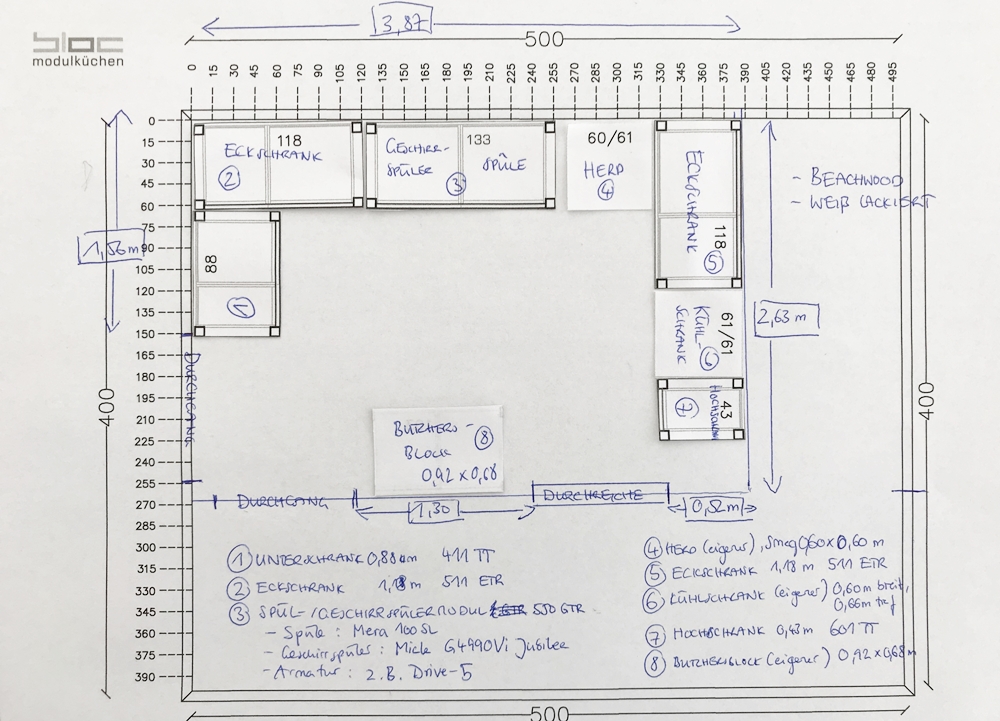 bloc
modulküchen
3,87
500
0 15 30 45 60 75 90 105 120 135 150 165 180 195 210 225 240 255 270 285 300 315 330 345 360 375 390 405 420 435 450 465 480 495
0
15
30
45
60
75
90
105
120
135
150
165
180
195
210
225
240
255
270
285
300
315
330
345
360
375
390
400
400
500
1,56 m
118
ECKSCHRANK
2
GESCHIRR-
SPÜLER
133
SPÜLE
3
60/61
HERD
4
ECKSCHRANK
118
5
- BEACHWOOD
- WEIß LACKIERT
88
1
61/61
KÜHL-
SCHRANK
6
2,63 m
43
HOCHSCHRANK
7
DURCHGANG
BUTCHERS-
BLOCK
8
0,92 x 0,68
DURCHGANG
1,30
DURCHREICHE
0,52m
1 UNTERSCHRANK 0,88 m 411 TT
2 ECKSCHRANK 1,18 m 511 ETR
3 SPÜL-/GESCHIRRSPÜLERMODUL 550 GTR
- Spüle : Mera 100 SL
- Geschirrspüler : Miele G4990Vi Jubilee
- Armatur : z.B. Drive-5
4 HERD (eigener), Smeg 0,60 x 0,60 m
5 ECKSCHRANK 1,18 m 511 ETR
6 KÜHLSCHRANK (eigener) 0,60m breit,
0,66m tief
7 HOCHSCHRANK 0,43m 601 TT
8 BUTCHERSBLOCK (eigener) 0,92 x 0,68 m